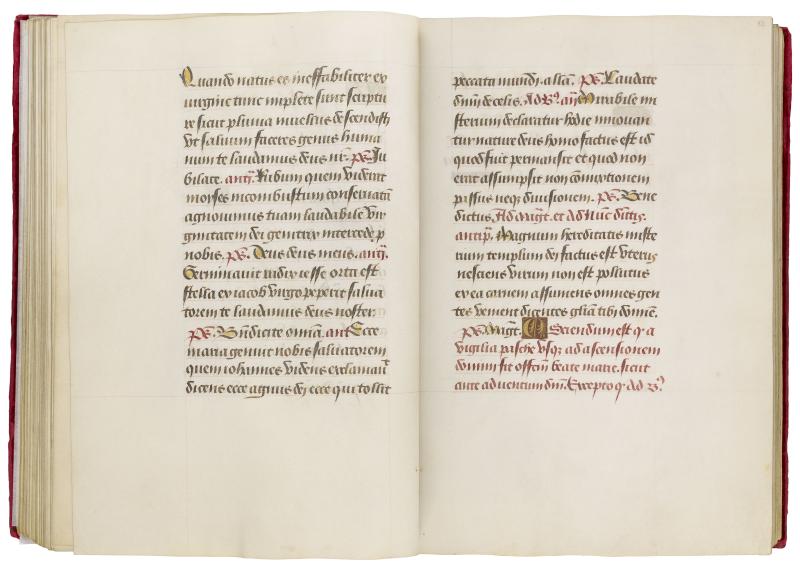 Quando natus es ineffabiliter ex
virgine tunc implete sunt scriptu
re sicut pluvia in vellus descendisti
Vt saluum faceres genus huma
num te laudamus deus nr̄. ps. Ju
bilate. antꝭ. Rubum quem viderat
moyses incombustum conseruatā
agnouimus tuam laudabile Vir
ginitatem dei genitrix intercede p̄
nobis. ps. Deus deus meus. antꝭ.
Germinauit radix iesse orta est
stella ex iacob virgo peperit salua
torem te laudamus deus noster.
ps. Bn̄dicite omīa. ant Ecce
maria genuit nobis saluatorem
quem iohannes videns exclamauit
dicens ecce agnus dei ecce qui tollit
peccata mundi. alła. ps. Laudate
dn̄m de celis. Ad B⁹. an̄ Mirabile mi
sterium declaratur hodie innouan
tur nature deus homo factus est id
quod fuit permansit et quod non
erat assumpsit non commixtionem
passus neqꝫ diuisionem. ps. Bene
dictus. Ad Magt. et Ad Nūc dittꝭ.
antip̄. Magnum hereditatis miste
rium templum dei factus est vterus
nesciens virum non est pollutus
ex ea carnem assumens omnes gen
tes venient dicentes gl̄ia tibi domīe.
ps. Magt. Sciendum est q̄ a
vigilia pasche vsqꝫ ad ascensionem
domini fit offm̄ beate marie. sicut
ante aduentum dn̄i. Excepto q̄ Ad B⁹